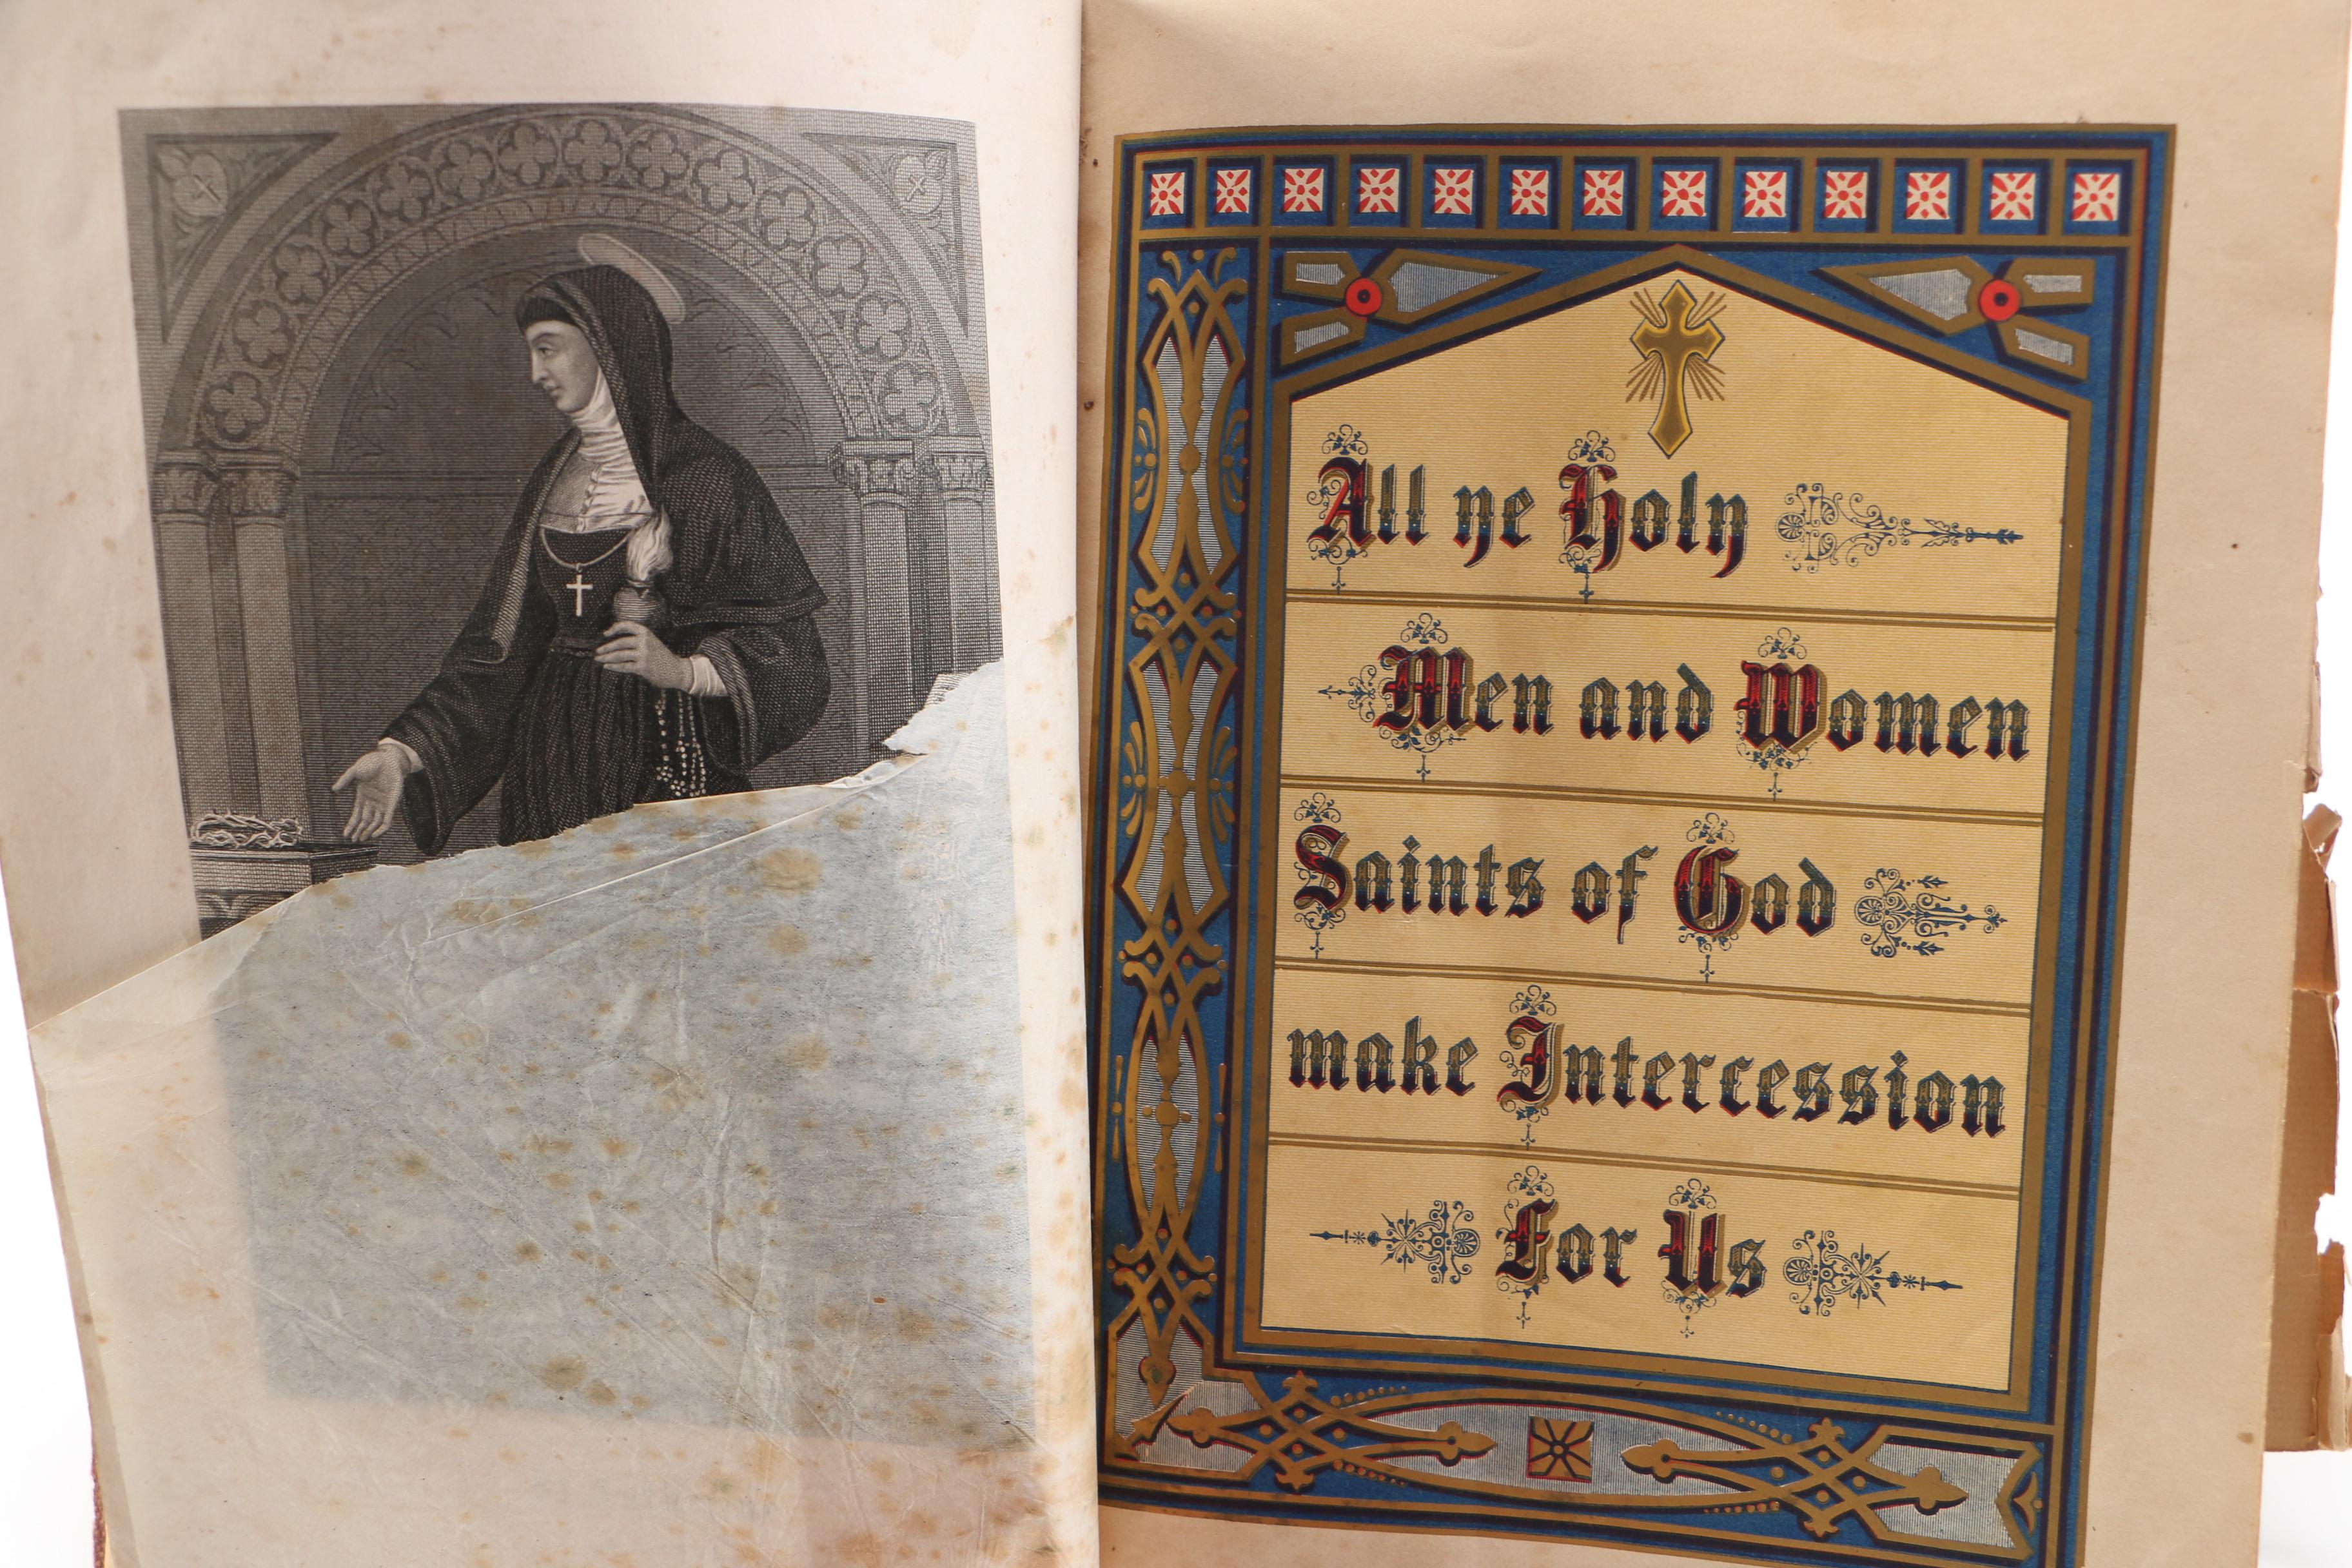 All ye Holy
Men and Women
Saints of God
make Intercession
For Us